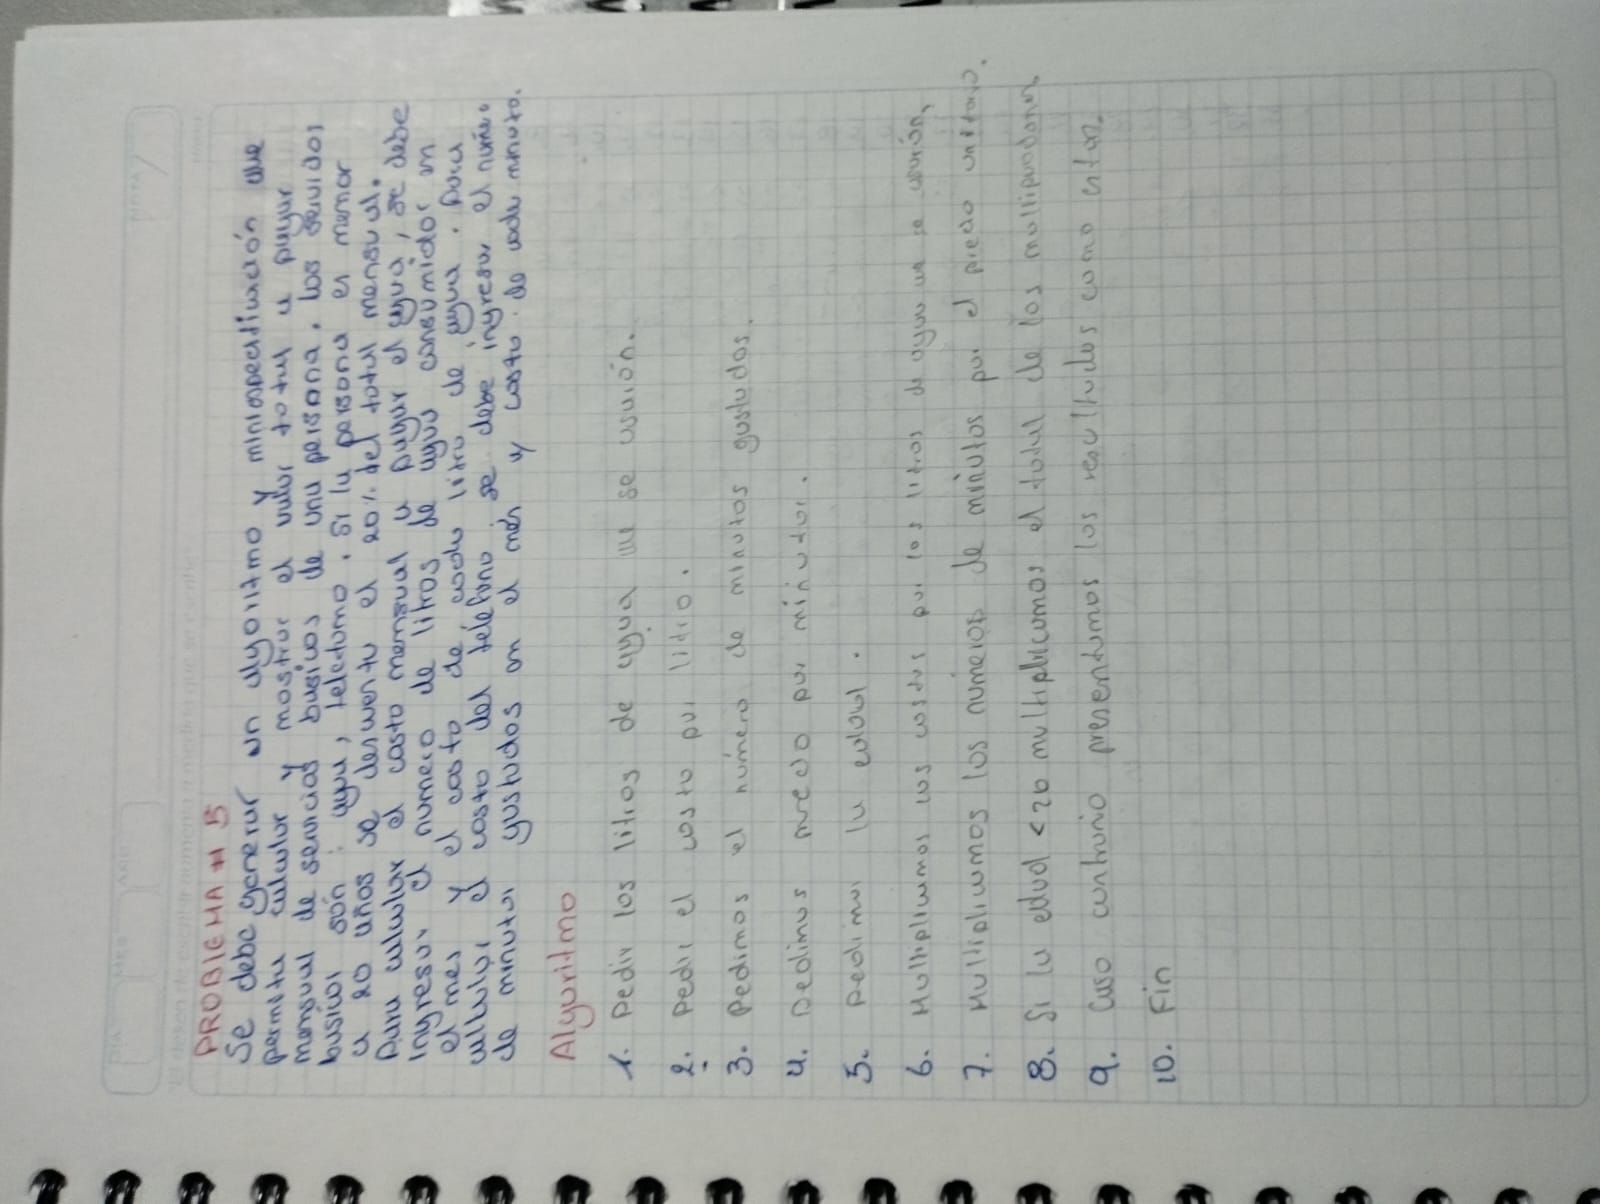 PROBLEMA # 5
Se debe generar un algoritmo y miniespecificación que
permita calcular y mostrar el valor total a pagar
mensual de servicios basicos de una persona. Los servicios
basicos són: agua, teléfono. Si la persona es menor
a 20 años se descuenta el 20% del total mensual.
Para calcular el costo mensual a pagar el agua, se debe
ingresar el numero de litros de agua consumidos en
el mes y el costo de cada litro de agua. Para
calcular el costo del teléfono se debe ingresar el número
de minutos gastados en el més y costo de cada minuto.
Algoritmo
1. Pedir los litros de agua que se usuión.
2. Pedir el costo por litro.
3. Pedimos el número de minutos gastados.
4. Pedimos precio por minutos.
5. Pedimos la edad.
6. Multiplicamos los costos por los litros de agua que se usuión,
7. Multiplicamos los números de minutos por el precio unitario.
8. Si la edad <20 multiplicamos el total de los
9. Caso contrario presentamos los resultados como estan.
10. Fin